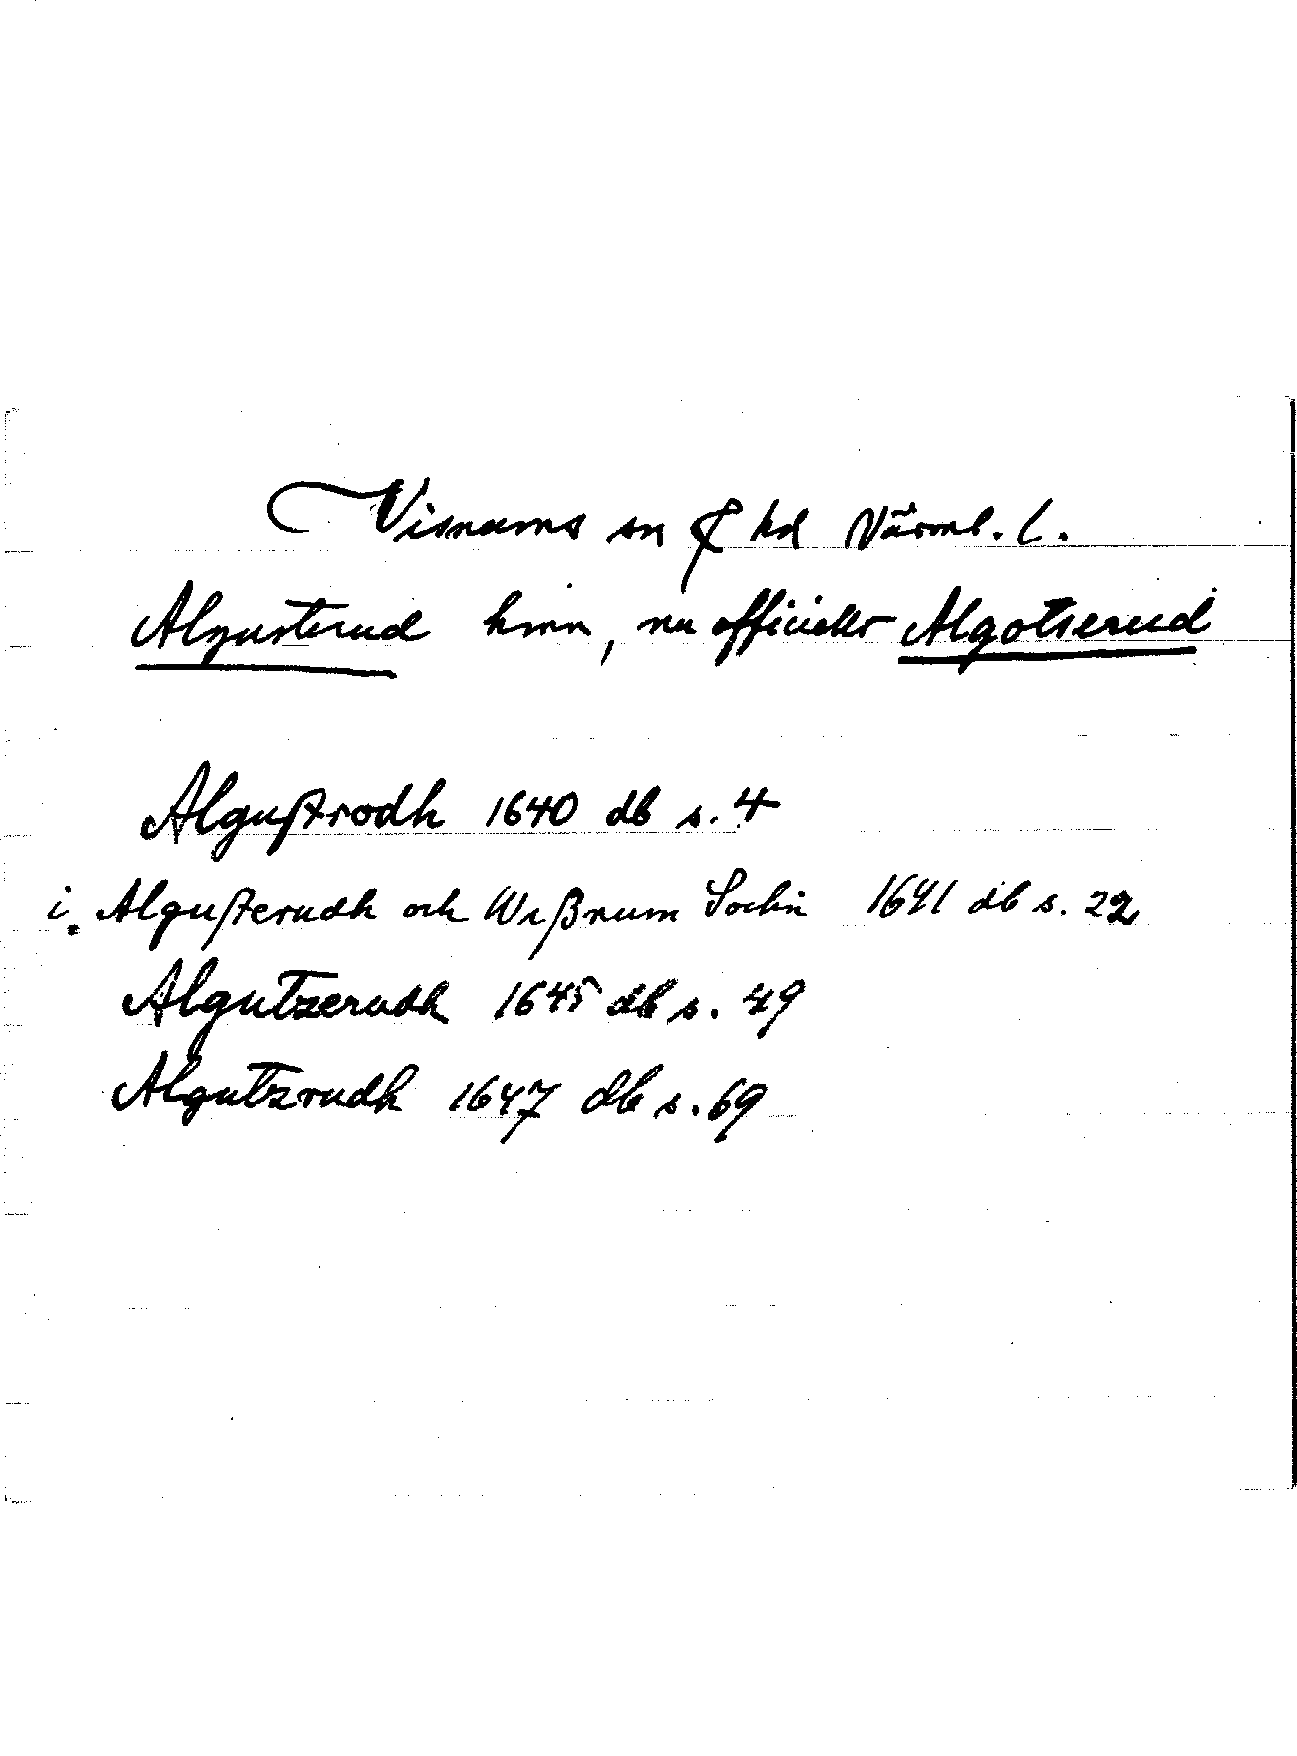 Visnums sn hd Värml. l.
Algusterud hmn, nu officiellt Algotserud
Algußtrodh 1640 db s. 4
i Algußterudh och Wißnum Sochn 1641 db s. 22
Algutzerudh 1645 db s. 49
Algutzrudh 1647 db s. 69